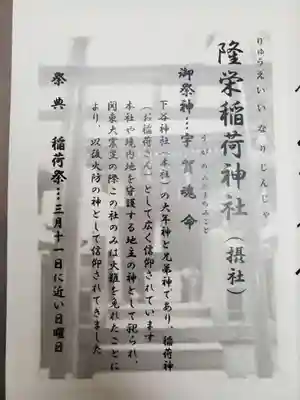 りゅうえいいなりじんじゃ
隆栄稲荷神社（摂社）
うかのみたまのみこと
御祭神…宇賀魂命
下谷神社（本社）の大年神と兄弟神であり、稲荷神
（お稲荷さん）として広く信仰されています
本社や境内地を守護する地主の神として祀られ、
関東大震災の際この社のみは火難を免れたことに
より、以後火防の神として信仰されてきました
祭典　稲荷祭…三月十一日に近い日曜日